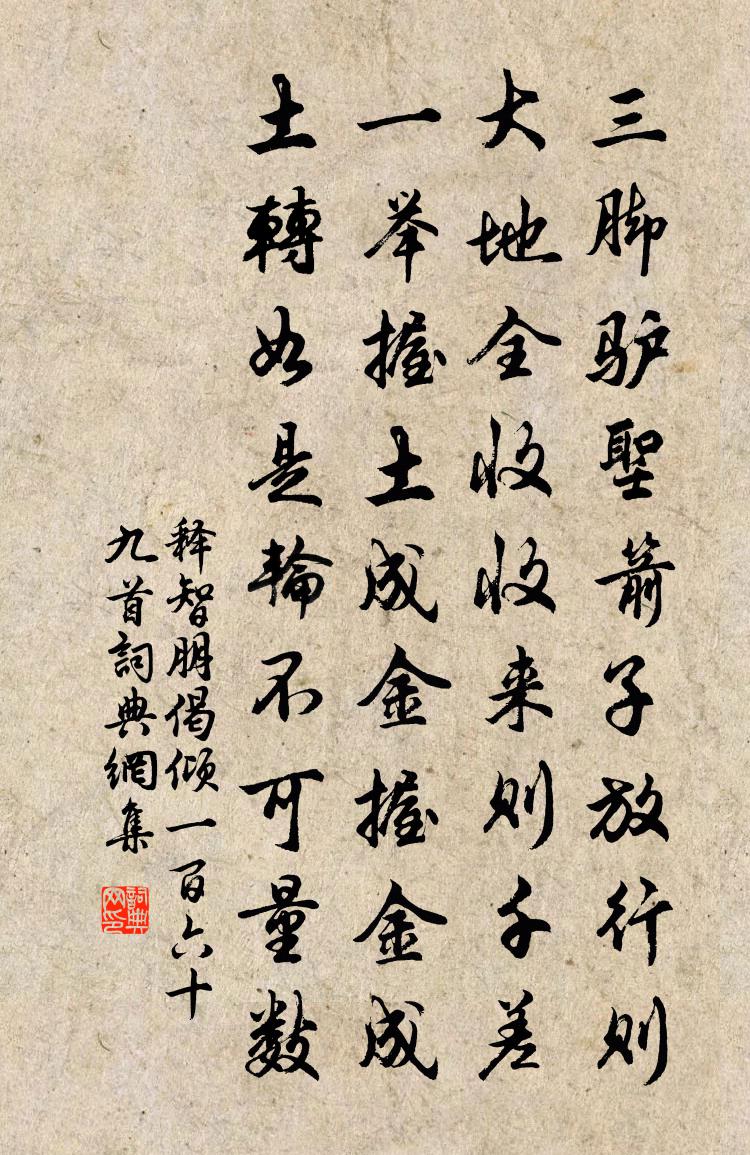 三脚驴聖箭子放行则
大地全收收来则千差
一举握土成金握金成
土轉如是輪不可量数
释智朋偈倾一百六十
九首詞典網集
詞典网印